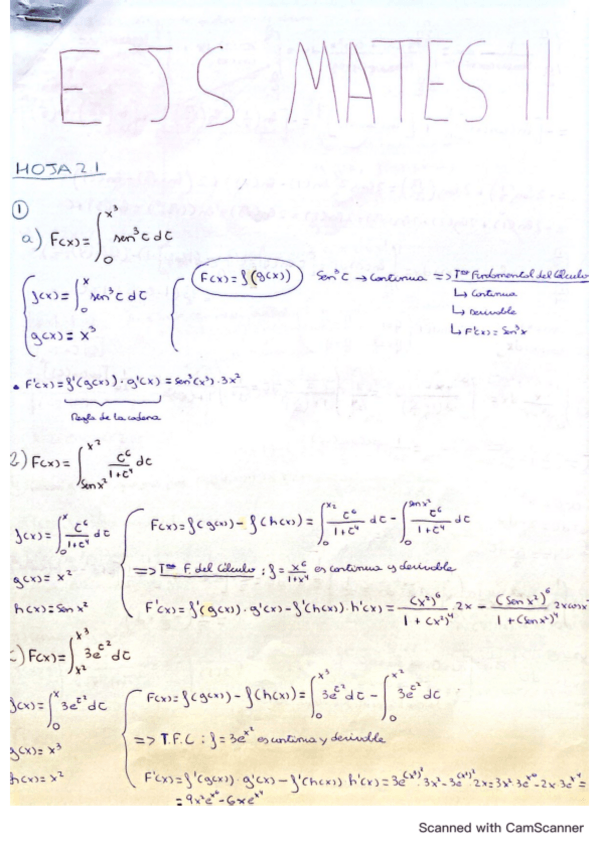 EJS MATES II
HOJA 21
①
a) F(x) = ∫₀^{x³} sen³t dt
f(x) = ∫₀^x sen³t dt
g(x) = x³
F(x) = f(g(x))
Sen³t → Continua => Tma Fundamental del Cálculo
↳ Continua
↳ Derivable
↳ F'(x) = Sen³x
• F'(x) = f'(g(x)) · g'(x) = sen³(x³) · 3x²
Regla de la cadena
2) F(x) = ∫_{sen x²}^{x²} t⁶/(1+t⁴) dt
f(x) = ∫₀^x t⁶/(1+t⁴) dt
g(x) = x²
h(x) = sen x²
F(x) = f(g(x)) - f(h(x)) = ∫₀^{x²} t⁶/(1+t⁴) dt - ∫₀^{sen x²} t⁶/(1+t⁴) dt
=> Tma F. del Cálculo : f = x⁶/(1+x⁴) es continua y derivable
F'(x) = f'(g(x)) · g'(x) - f'(h(x)) · h'(x) = (x²)⁶/(1+(x²)⁴) · 2x - (sen x²)⁶/(1+(sen x²)⁴) 2x cos x²
c) F(x) = ∫_{x²}^{x³} 3e^{t²} dt
f(x) = ∫₀^x 3e^{t²} dt
g(x) = x³
h(x) = x²
F(x) = f(g(x)) - f(h(x)) = ∫₀^{x³} 3e^{t²} dt - ∫₀^{x²} 3e^{t²} dt
=> T.F.C : f = 3e^{x²} es continua y derivable
F'(x) = f'(g(x)) · g'(x) - f'(h(x)) · h'(x) = 3e^{(x³)²} · 3x² - 3e^{(x²)²} · 2x = 3x² · 3e^{x⁶} - 2x · 3e^{x⁴} =
= 9x²e^{x⁶} - 6xe^{x⁴}
Scanned with CamScanner